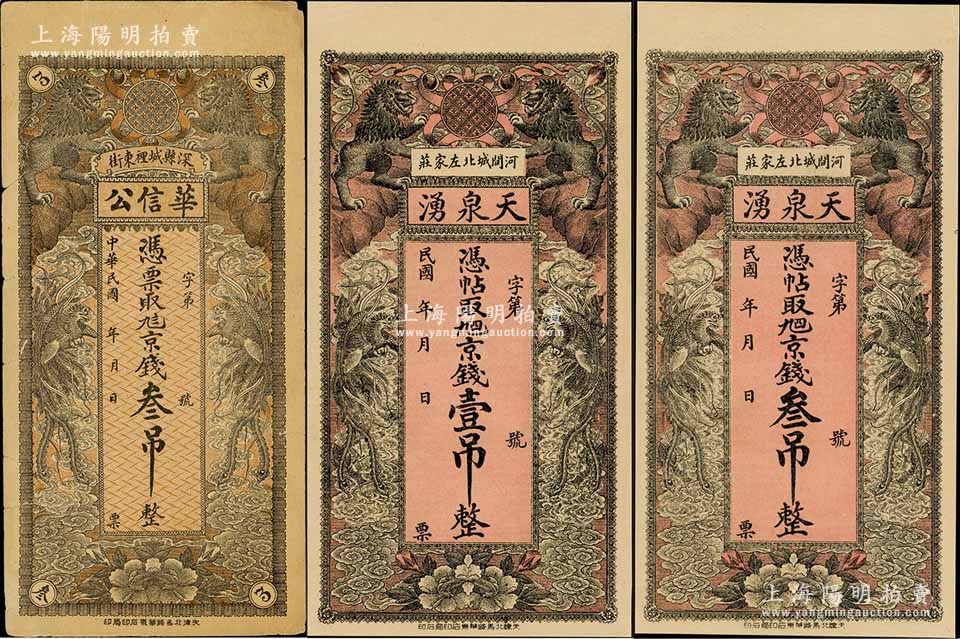 上海陽明拍賣
www.yangmingauction.com
深縣城裡東街
華信公
字第 號
憑票取京錢叁吊整
中華民國 年 月 日 票
天津北馬路華東石印局印
河間城北左家莊
天泉湧
字第 號
憑帖取京錢壹吊整
民國 年 月 日 票
天津北馬路華東石印局石印
上海陽明拍賣
www.yangmingauction.com
河間城北左家莊
天泉湧
字第 號
憑帖取京錢叁吊整
民國 年 月 日 票
天津北馬路華東石印局石印
上海陽明拍賣
www.yangmingauction.com